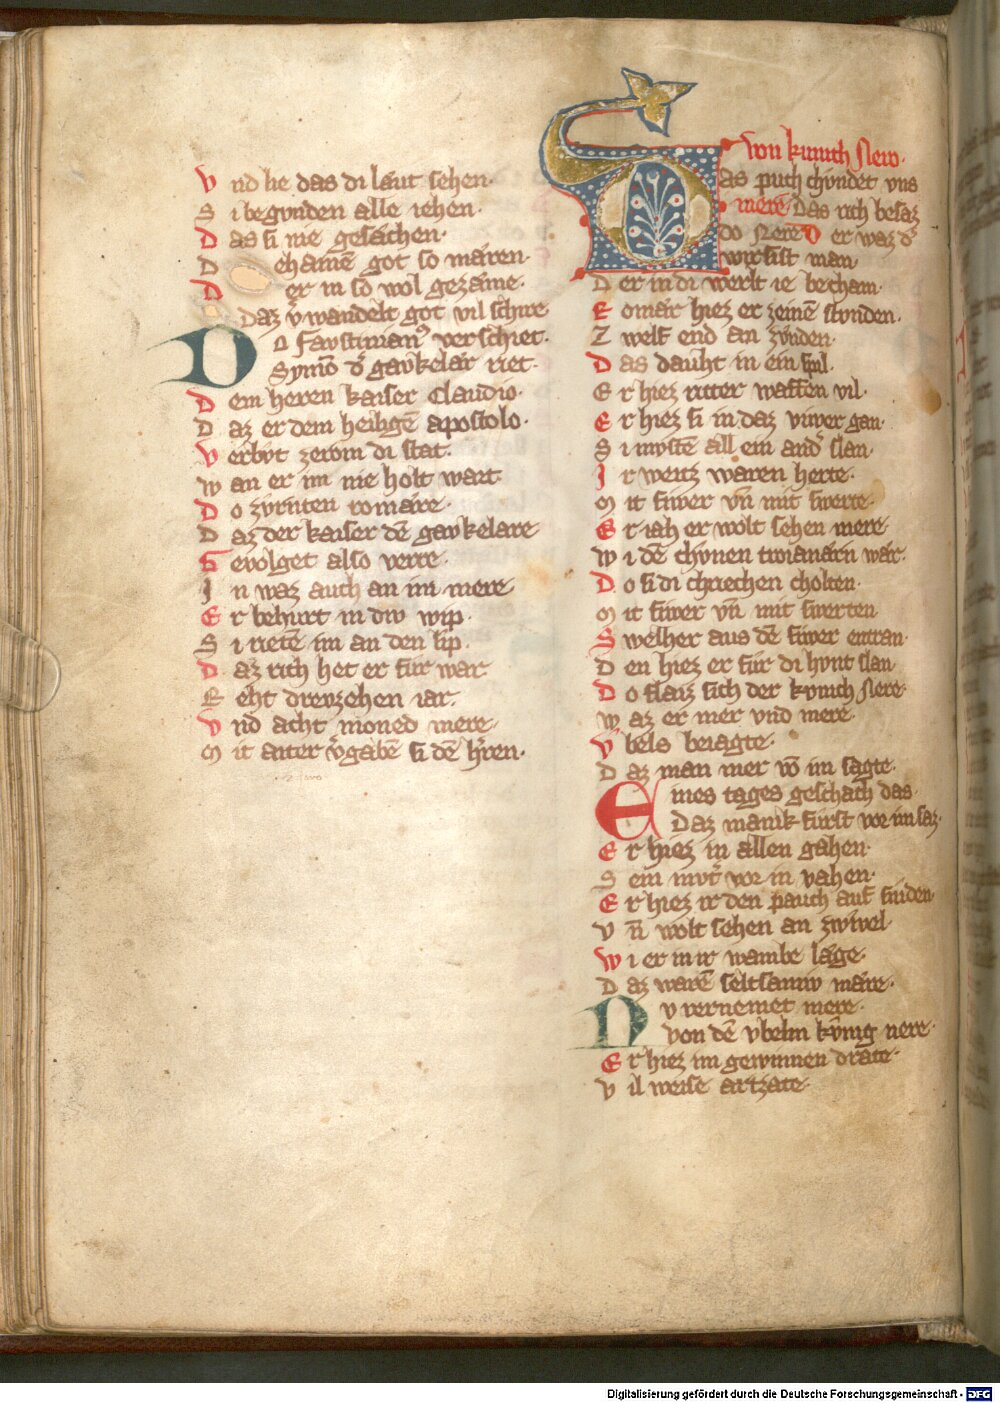 Vnd lie das di laͤut sehen·
Si begunden alle iehen·
Das si nie gesachen·
Dehainē got so maͤren·
Der in so wol gezaͤme·
Daz v̓wandelt got vil schire
Do faustinian9 verschiet·
Symō d̓ gaukelar riet·
Dem herren kaiser Claudio·
Daz er dem heiligē apostolo·
Verbvt zerom di stat·
Wan er im nie holt wart
Do zvrnten romaͤre·
Daz der kaiser dē gavkelare
Gevolget also verre·
In waz auch an im mere
Er behurt in div wip·
Si rietē im an den lip·
Daz rich het er fur war
Reht drevzehen iar·
Vnd acht moned mere·
Mit aiter v̓gabē si dē h̓ren·
Von kunich Nero·
Das puch chvndet vns
merē Das rich besaz
do Nerē Der waz d̓
wirsist man
Der in di werlt ie becham·
Romaͤr hiez er zeinē stvnden·
Zwelf end an zvnden·
Das dauht in ein spil·
Er hiez ritter waffen vil·
Er hiez si in daz viwer gan·
Si mvstē all ein and̓ slan·
Ir weitz waren herte·
Mit fiwer vn̄ mit swerte·
Er iah er wolt sehen mere
Wi dē chvnen troianarn war·
Do si di chriechen cholten·
Mit fiwer vn̄ mit swerten
Swelher aus dē fiwer entran·
Den hiez er fur di hvnt slan
Do flaiz sich der kunich Nere·
Waz er mer vnd mere·
Vbels beiagte·
Daz man mer vō im sagte·
Eines tages geschach das·
Daz manik furst vor im saz·
Er hiez in allen gahen·
Sein mvt̓ vor in vahen·
Er hiez ir den pauch auf sniden
Vn̄ wolt sehen an zwivel
Wi er in ir wambe lage·
Daz warē seltsaniv maͤre·
Nv vernemet mere·
Von dē vbeln kv̓nig nere·
Er hiez im gewinnen drate·
Vil weise artzate·
Digitalisierung gefördert durch die Deutsche Forschungsgemeinschaft - DFG